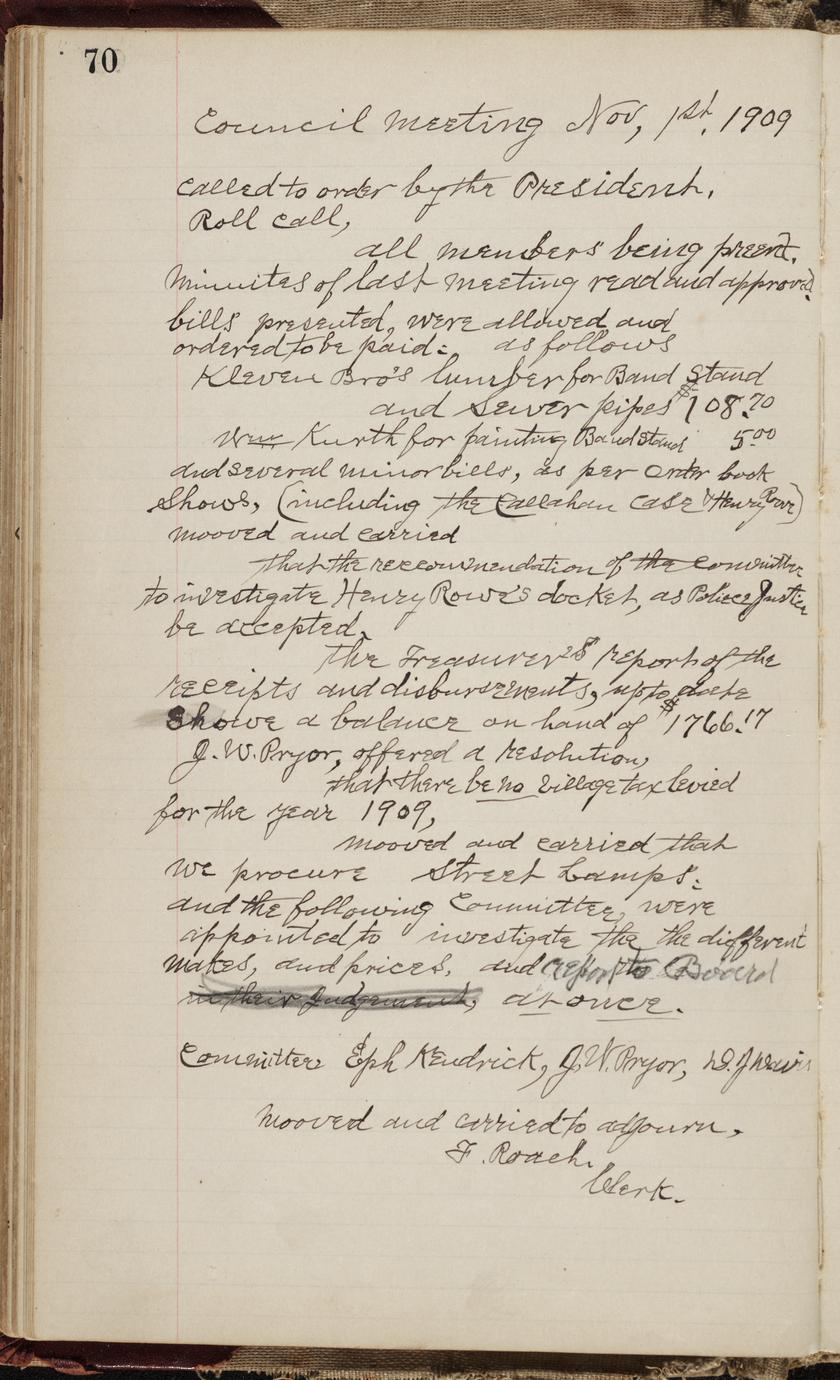 70
Council Meeting Nov, 1st. 1909
called to order by the President.
Roll call,
all members being present.
Minuites of last meeting read and approved,
bills presented, were allowed and
ordered to be paid: as follows
Kleven Bro's lumber for Band Stand
and Sewer pipes $108.70
Wm Kurth for painting Band stand 5.00
and several minor bills, as per order book
Shows, (including the Callahan case & Henry Rowe)
mooved and carried
that the reccommendation of the committee
to investigate Henry Rowe's docket, as Police Justice
be accepted.
The Treasurers report of the
receipts and disbursements, up to date
Showe a balance on hand of $1766.17
J. W. Pryor, offered a resolution,
that there be no village tax levied
for the year 1909,
mooved and carried that
we procure Street Lamps:
and the following Committee, were
appointed to investigate the the different
makes, and prices, and report to Board
in their Judgement, at once.
Committee Eph Kendrick, J. W. Pryor,
Mooved and carried to adjourn.
F. Roach.
Clerk.